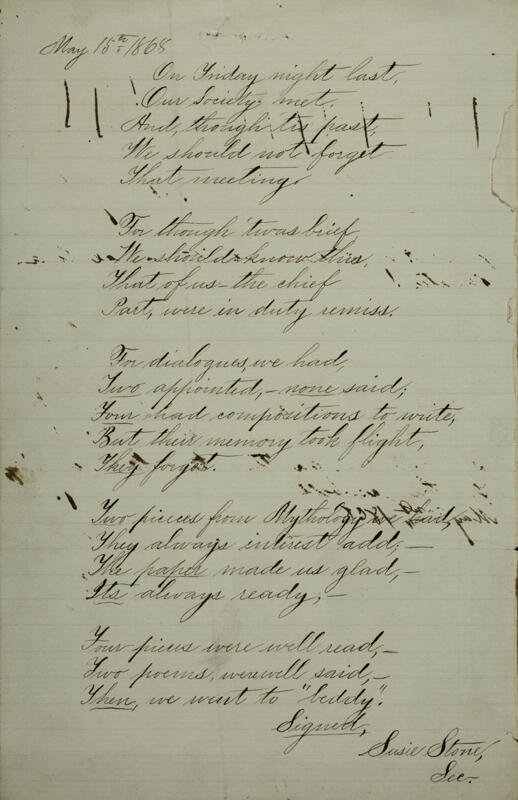 May 15th 1868
On Friday night last,
Our Society, met,
And, though tis past,
We should not forget
That meeting.
For though 'twas brief,
We should know this,
That of us – the chief
Part, were in duty remiss.
For dialogues, we had,
Two appointed, – none said;
Four had compositions to write,
But their memory took flight,
They forgot.
Two pieces from Mythology we had,
They always interest add; –
The paper made us glad, –
Its always ready; –
Four pieces were well read, –
Two poems, were well said, –
Then, we went to "beddy".
Signed,
Susie Stone,
Sec.